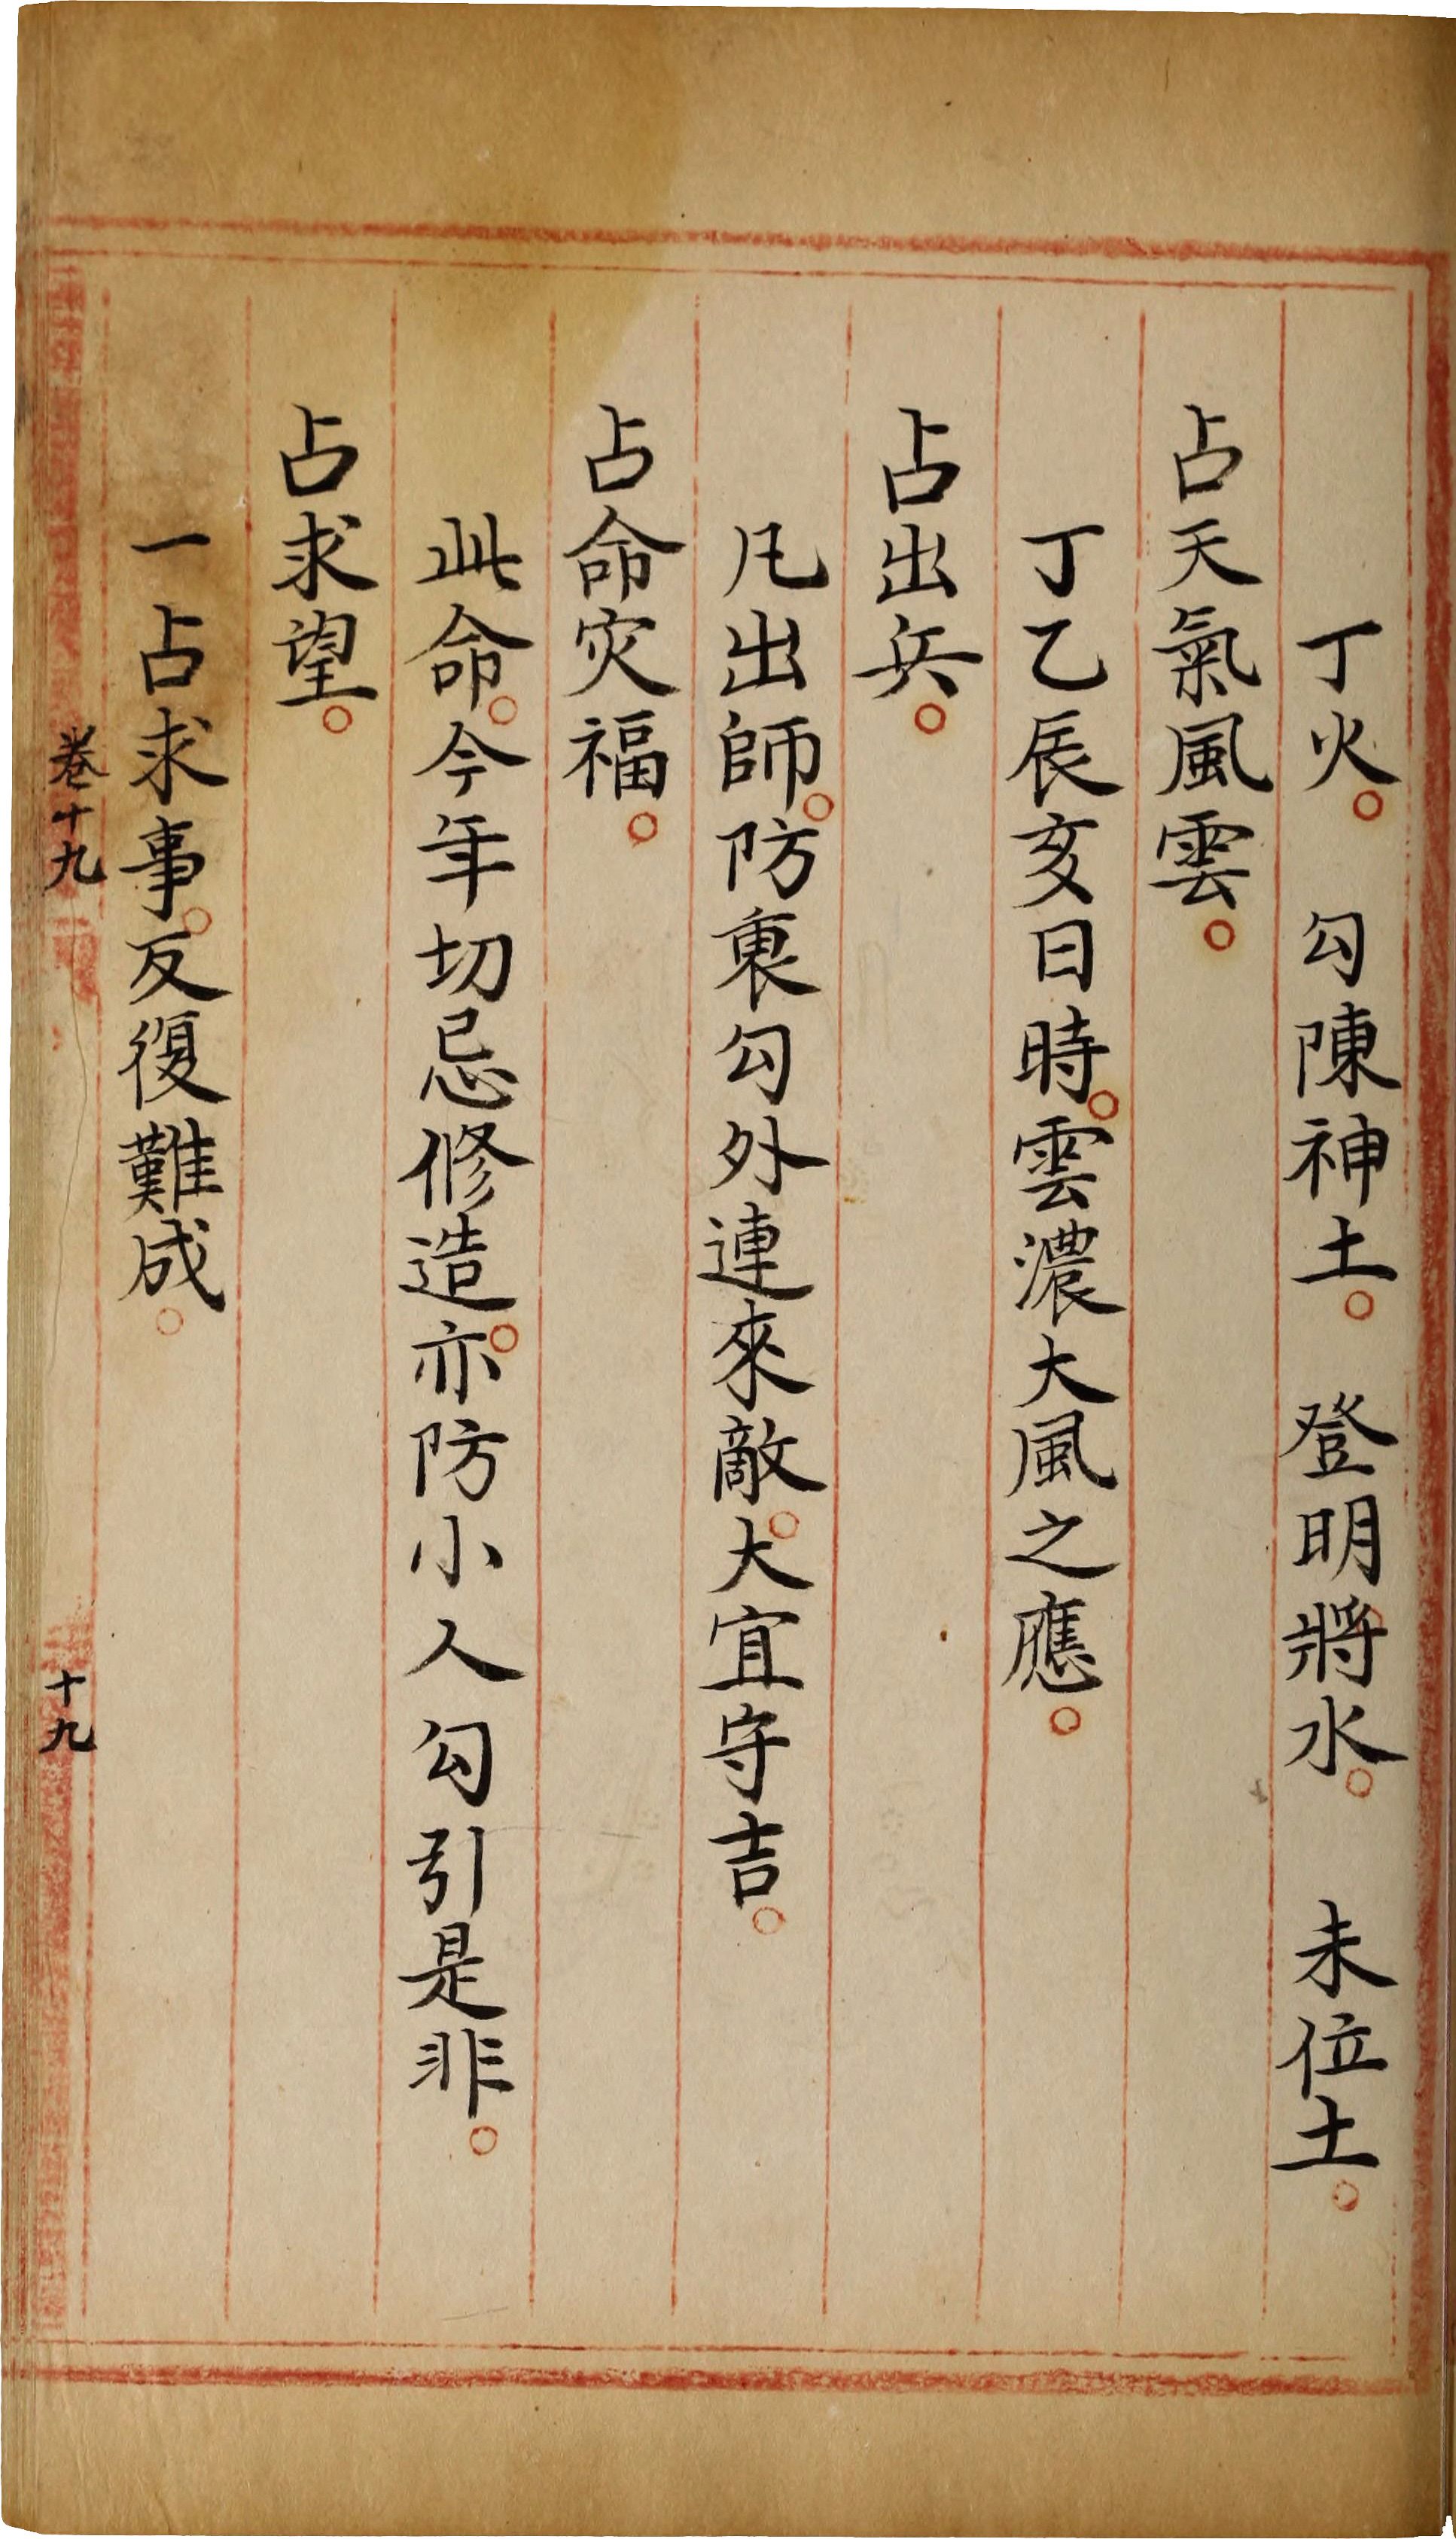 丁火。　勾陳神土。　登明將水。　未位土。
占天氣風雲。
丁乙辰亥日時。雲濃大風之應。
占出兵。
凡出師。防裏勾外連來敵。大宜守吉。
占命灾福。
此命。今年切忌修造。亦防小人勾引是非。
占求望。
一占求事。反復難成。
卷十九
十九